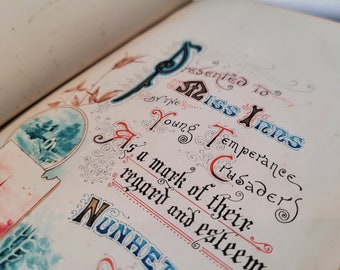 Presented to
Miss Inns
by the
Young Temperance
Crusaders
As a mark of their
regard and esteem
NUNHE